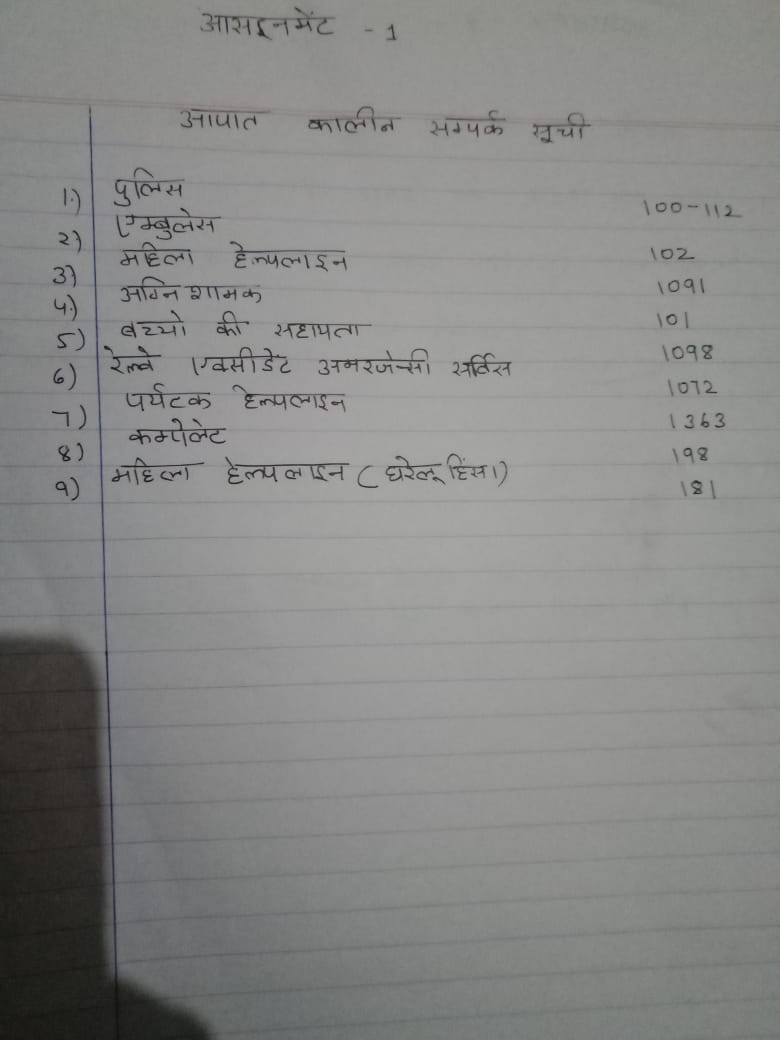 आसइनमेंट - 1
आपात कालीन सम्पर्क सूची
1.) पुलिस 100-112
2) एम्बुलेस 102
3) महिला हेल्पलाइन 1091
4.) अग्नि शामक 101
5) बच्चो की सहायता 1098
6) रेल्वे एक्सीडेंट अमरजेन्सी सर्विस 1072
7) पर्यटक हेल्पलाइन 1363
8) कम्पेलेट 198
9) महिला हेल्पलाइन (घरेलू हिंसा) 181